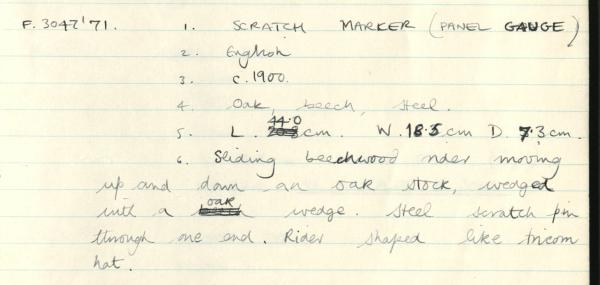 F.3047'71. 1. SCRATCH MARKER (PANEL GAUGE)
2. English
3. c.1900.
4. Oak, beech, steel.
5. L. 44.0 cm. W. 18.5 cm D. 7.3 cm.
6. Sliding beechwood rider moving
up and down an oak stock, wedged
with a oak wedge. Steel scratch pin
through one end. Rider shaped like tricorn
hat.